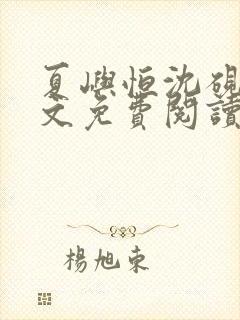 夏嶼恒沈硯
文免費閱讀
楊旭東